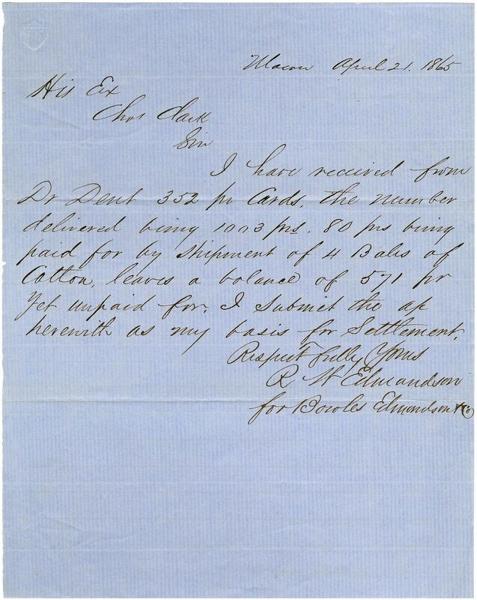 Macon April 21. 1865
His Ex
Chas Clark
Sir
I have received from
Dr Dent 352 pr Cards, the number
delivered being 1003 prs. 80 prs being
paid for by shipment of 4 Bales of
Cotton, leaves a balance of 571 pr
yet unpaid for. I submit the
herewith as my basis for Settlement.
Respectfully Yours
R W Edmandson
for Bowles Edmandson & Co